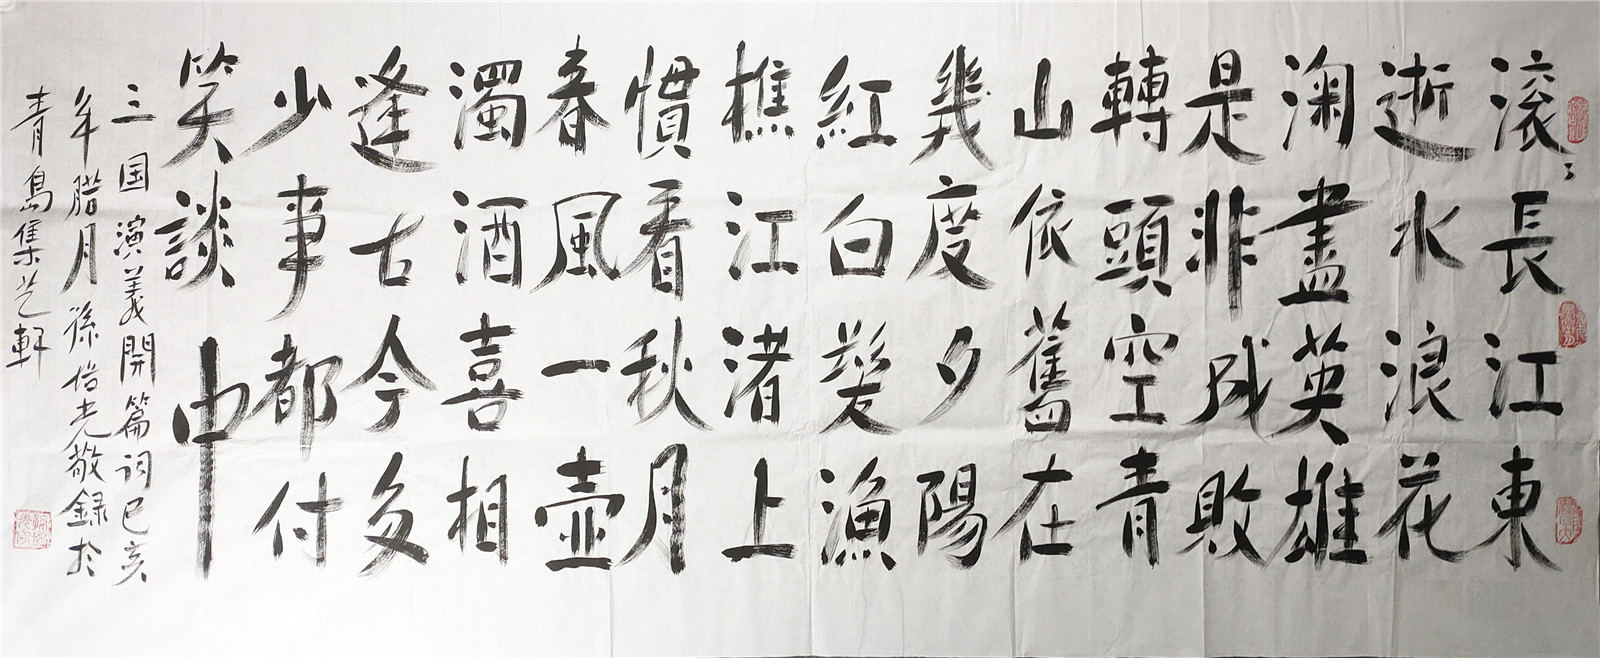 滚〻長江東
逝水浪花
淘盡英雄
是非成敗
轉頭空青
山依舊在
幾度夕陽
紅白髮漁
樵江渚上
慣看秋月
春風一壺
濁酒喜相
逢古今多
少事都付
笑談中
三国演義開篇词己亥
年腊月孫培光敬録於
青島集芝軒